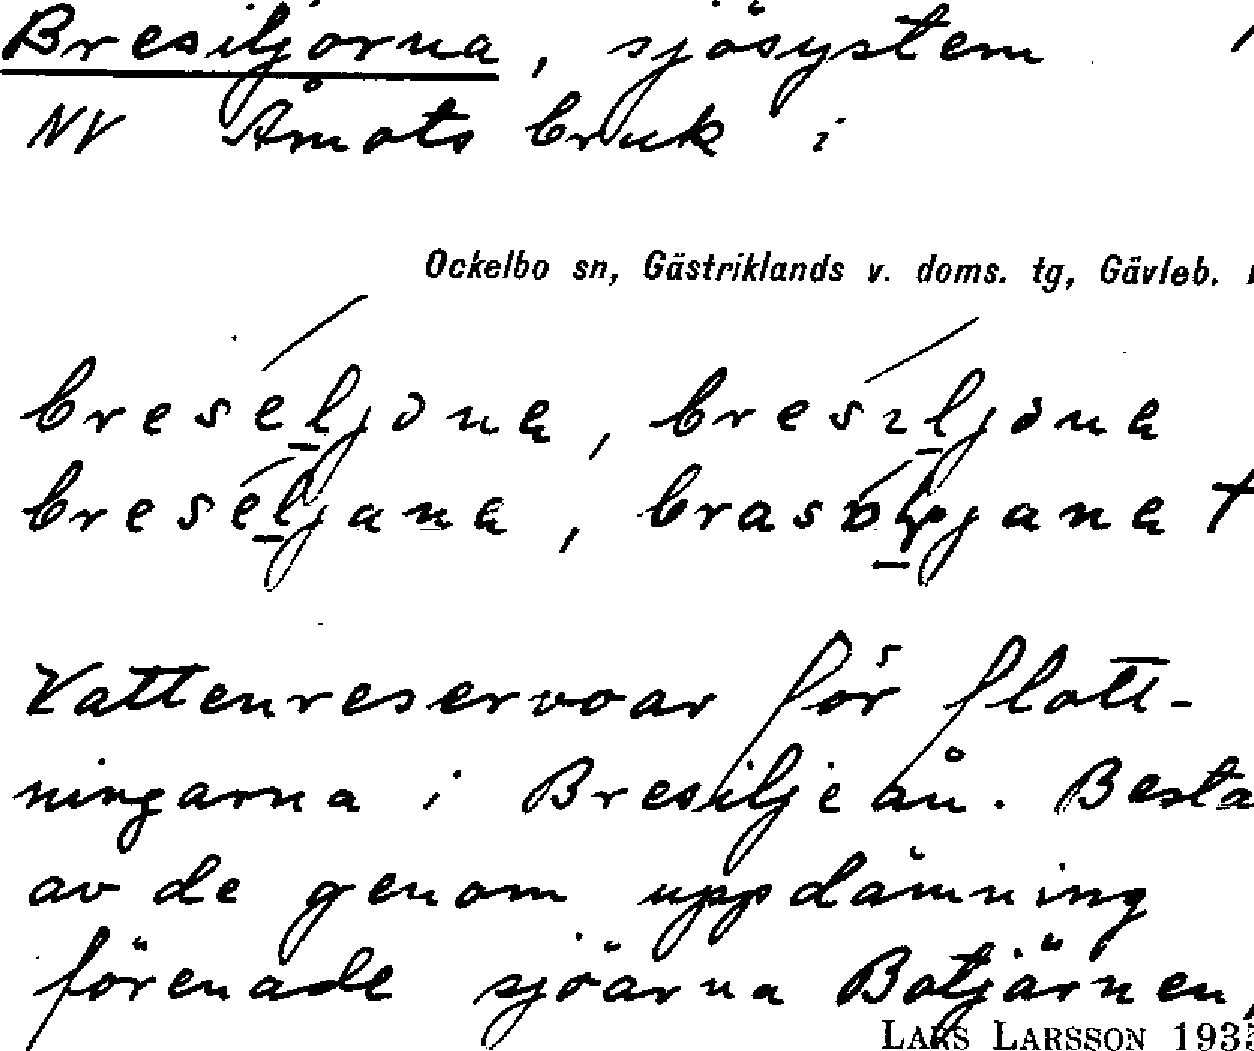 Bresiljorna, sjösystem
NV Åmots bruk i
Ockelbo sn, Gästriklands v. doms. tg, Gävleb.
breseljona, bresiljona
breseljana,
Vattenreservoar för flott-
ningarna i Bresiljeån. Bestå
av de genom uppdämning
förenade sjöarna Botjärnen,
LARS LARSSON 1935